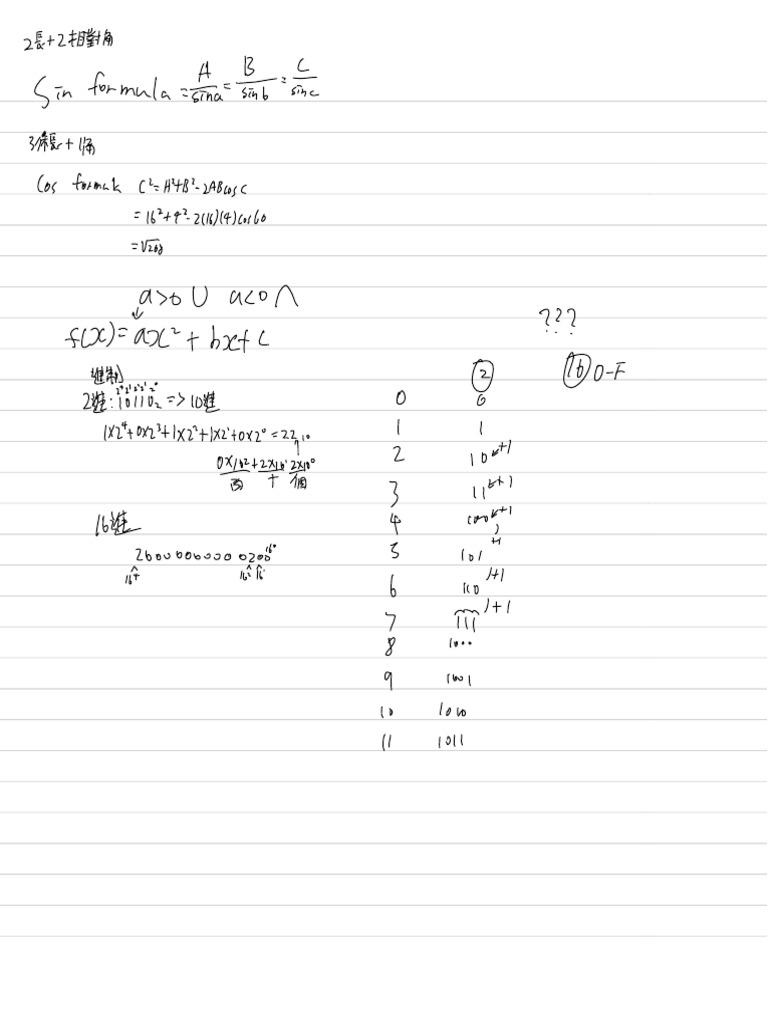 2長+2相對角
Sin formula = A/sina = B/sinb = C/sinc
3條長+1角
Cos formula C²=A²+B²-2ABcosC
= 16²+4²-2(16)(4)cos60
= √208
a>0 ∪ a<0 ∩
f(x)= ax²+bx+c
???
進制
2進: 10110₂ => 10進
2⁴ 2³ 2² 2¹ 2⁰
1×2⁴+0×2³+1×2²+1×2¹+0×2⁰=22₁₀
0×10²+2×10¹+2×10⁰
百 十 個
16進
2000000000 0200
16⁰
16² 16¹
② ⑯ 0-F
0 0
1 1
2 10 +1
3 11 +1
4 100 +1
5 101 +1
6 110 1+1
7 111 1+1
8 1000
9 1001
10 1010
11 1011